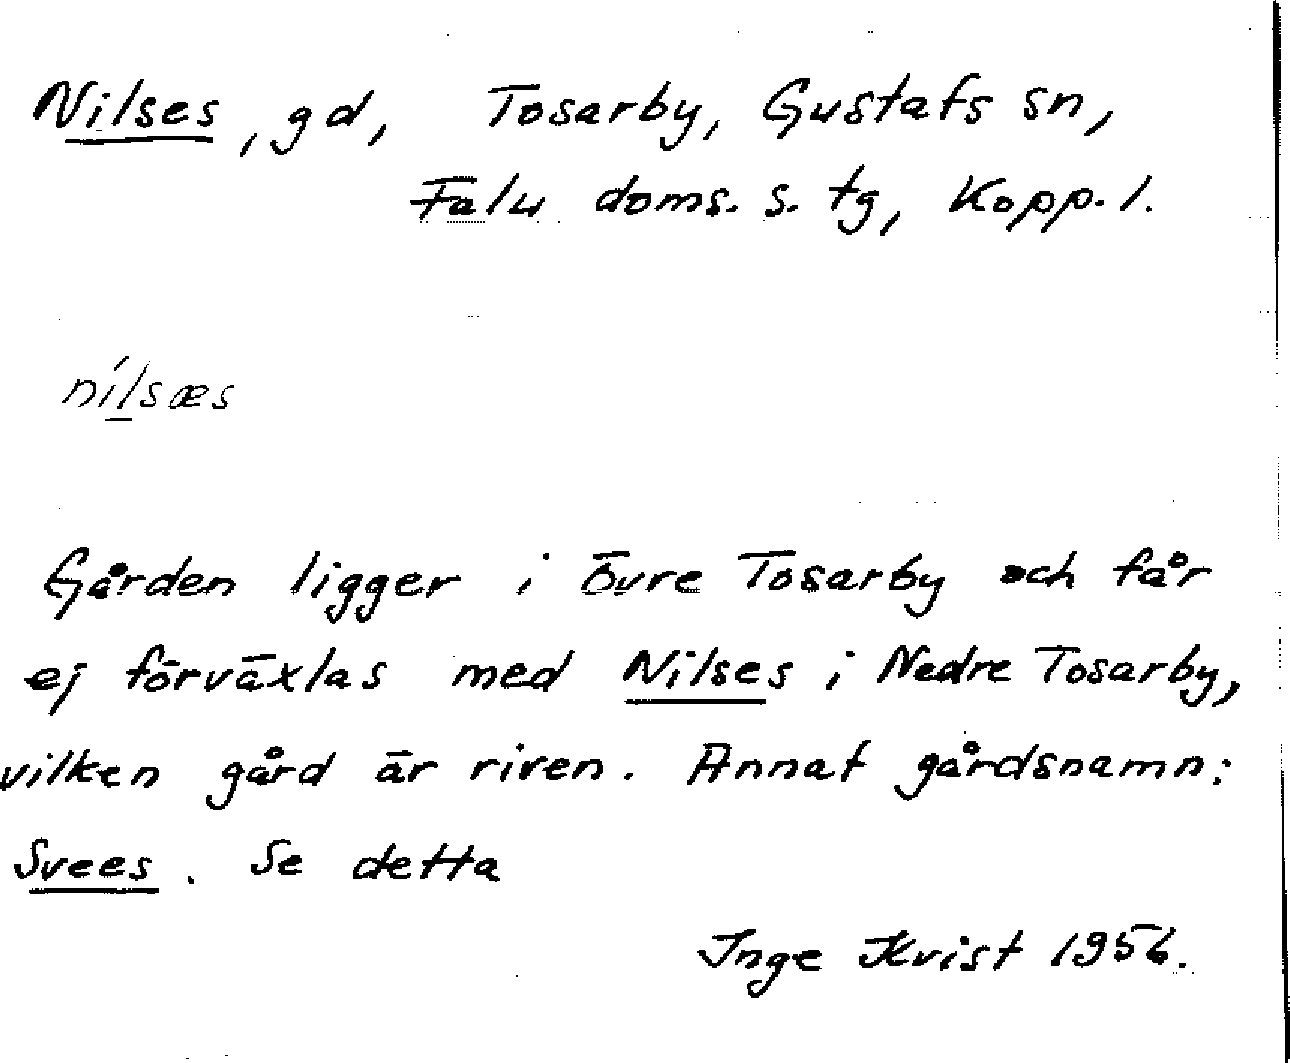 Nilses, gd, Tosarby, Gustafs sn,
Falu doms. s. tg, Kopp. l.
nílsæs
Gården ligger i Övre Tosarby och får
ej förväxlas med Nilses i Nedre Tosarby,
vilken gård är riven. Annat gårdsnamn:
Svees. Se detta
Inge Kvist 1956.